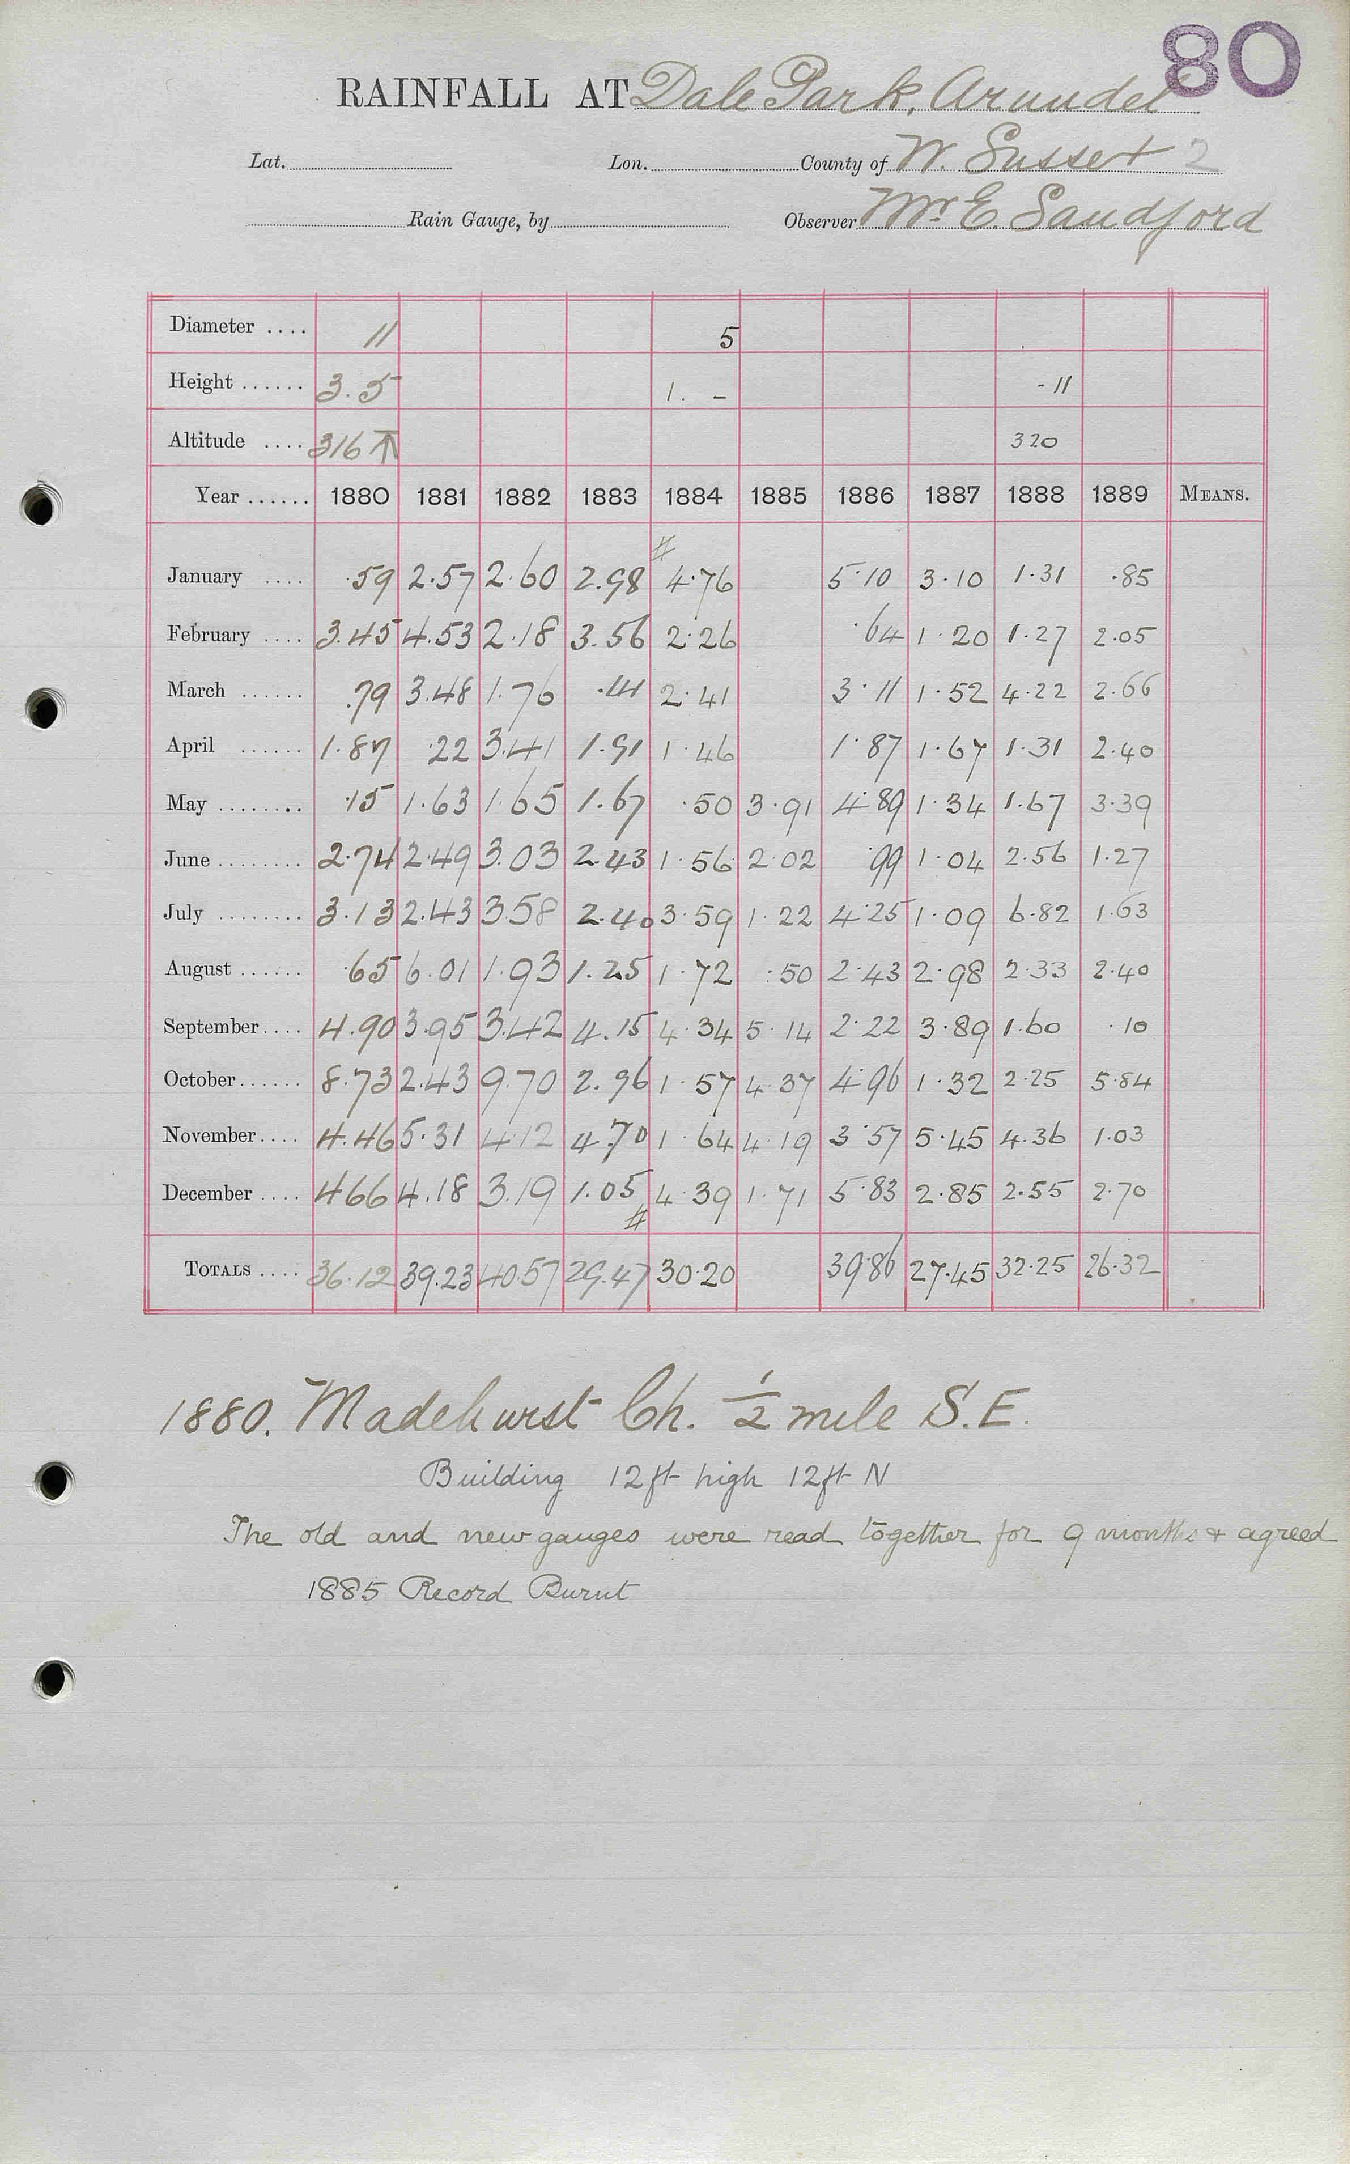 80
RAINFALL AT Dale Park, Arundel
Lat. Lon. County of W. Sussex 2
Rain Gauge, by Observer Mr E. Sandford
Diameter .... 11 5
Height ...... 3.5 1. - - 11
Altitude .... 316 ↑ 320
Year ...... 1880 1881 1882 1883 1884 1885 1886 1887 1888 1889 MEANS.
#
January .... .59 2.57 2.60 2.98 4.76 5.10 3.10 1.31 .85
February .... 3.45 4.53 2.18 3.56 2.26 .64 1.20 1.27 2.05
March ...... .79 3.48 1.76 .41 2.41 3.11 1.52 4.22 2.66
April ...... 1.87 .22 3.41 1.91 1.46 1.87 1.67 1.31 2.40
May ........ .15 1.63 1.65 1.67 .50 3.91 4.89 1.34 1.67 3.39
June ........ 2.74 2.49 3.03 2.43 1.56 2.02 .99 1.04 2.56 1.27
July ........ 3.13 2.43 3.58 2.40 3.59 1.22 4.25 1.09 6.82 1.63
August ...... .65 6.01 1.93 1.25 1.72 .50 2.43 2.98 2.33 2.40
September.... 4.90 3.95 3.42 4.15 4.34 5.14 2.22 3.89 1.60 .10
October...... 8.73 2.43 9.70 2.96 1.57 4.37 4.96 1.32 2.25 5.84
November.... 4.46 5.31 4.12 4.70 1.64 4.19 3.57 5.45 4.36 1.03
December .... 4.66 4.18 3.19 1.05 4.39 1.71 5.83 2.85 2.55 2.70
#
TOTALS .... 36.12 39.23 40.57 29.47 30.20 39.86 27.45 32.25 26.32
1880. Madehurst Ch. ½ mile S.E.
Building 12ft high 12ft N
The old and new gauges were read together for 9 months & agreed
1885 Record Burnt